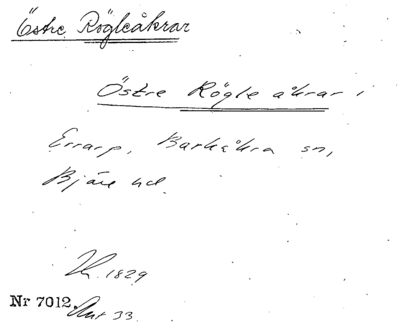 Östre Rögleåkrar
Östre Rögle åkrar i
Errarp, Barkåkra sn,
Bjäre hd.
1829
Nr 7012. Akt 33